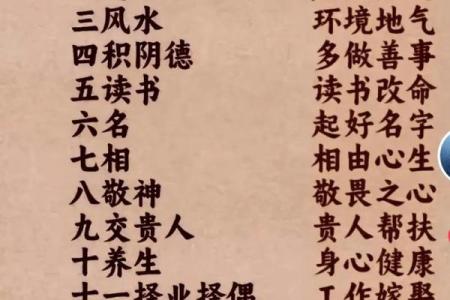 三风水 环境地气
四积阴德 多做善事
五读书 读书改命
六名 起好名字
七相 相由心生
八敬神 敬畏之心
九交贵人 贵人帮扶
十养生 身心健康
十一择业择偶 工作嫁娶